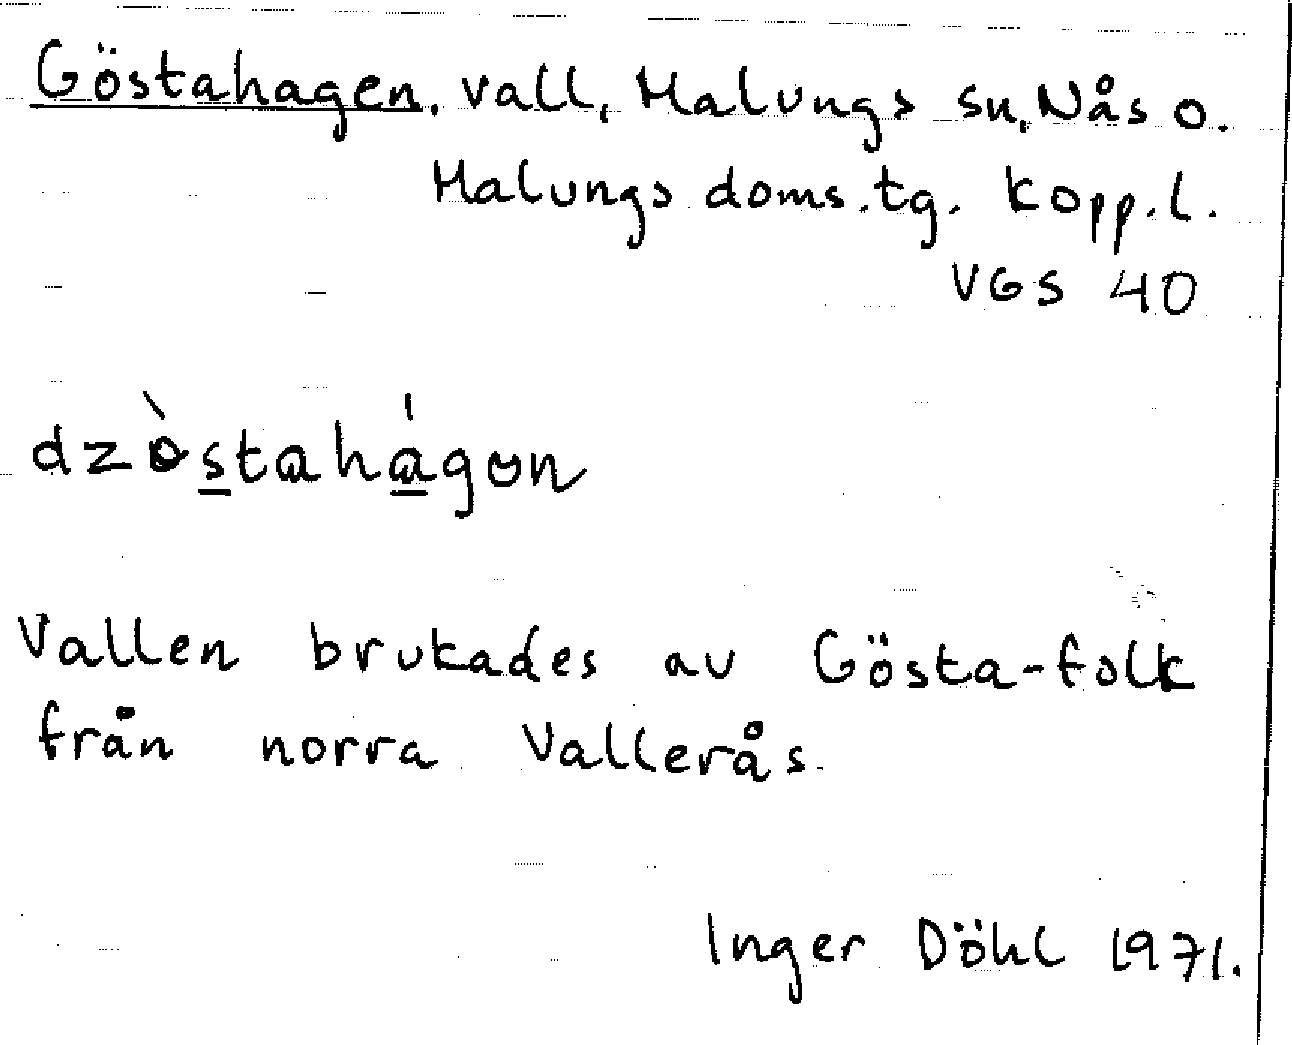 Göstahagen. vall, Malungs sn, Nås o.
Malungs doms.tg. Kopp.l.
VGS 40
dzòstahágon
Vallen brukades av Gösta-folk
från norra Vallerås.
Inger Döhl 1971.